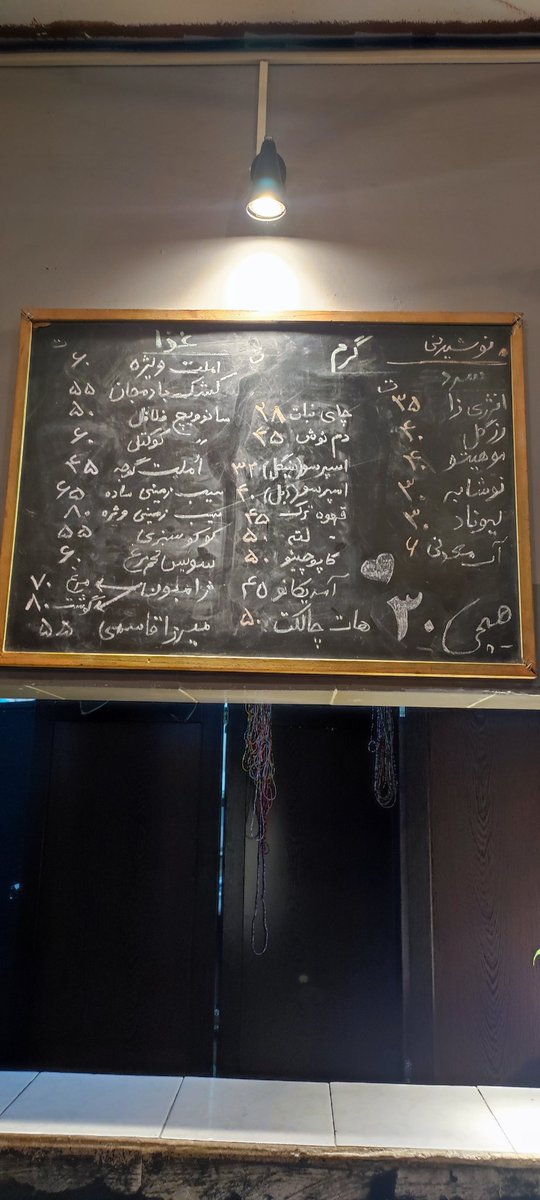 نوشیدنی
سرد
ت
انرژی زا ۳۵
رزگل ۴۰
موهیتو ۴۰
نوشابه ۳۰
لیموناد ۳۰
آب معدنی ۶
هیچی ۳۰
گرم
چای نبات ۲۸
دم نوش ۴۵
اسپرسو (سینگل) ۳۲
اسپرسو (دبل) ۴۰
قهوه ترک ۴۵
- لته ۵۰
کاپوچینو ۵۰
آمریکانو ۴۵
هات چاکلت ۵۰
غذا
ت
املت ویژه ۶۰
کشک بادمجان ۵۵
ساندویچ فلافل ۵۰
" کوکتل ۶۰
املت گوجه ۴۵
سیب زمینی ساده ۶۵
سیب زمینی ویژه ۸۰
کوکو سبزی ۵۵
سوسیس تخم مرغ ۶۰
ژامبون مرغ ۷۰
گوشت ۸۰
میرزا قاسمی ۵۵